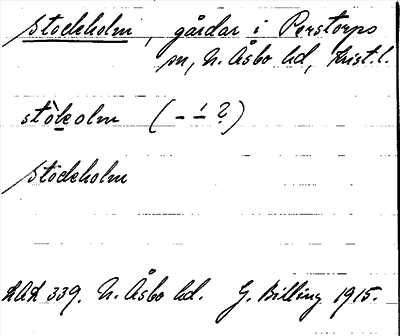 Stockholm, gårdar i Perstorps
sn, N. Åsbo hd, Krist. l.
stò̀kolm (– –́ ?)
Stockholm
LAL 339. N. Åsbo hd. G. Billing 1915.